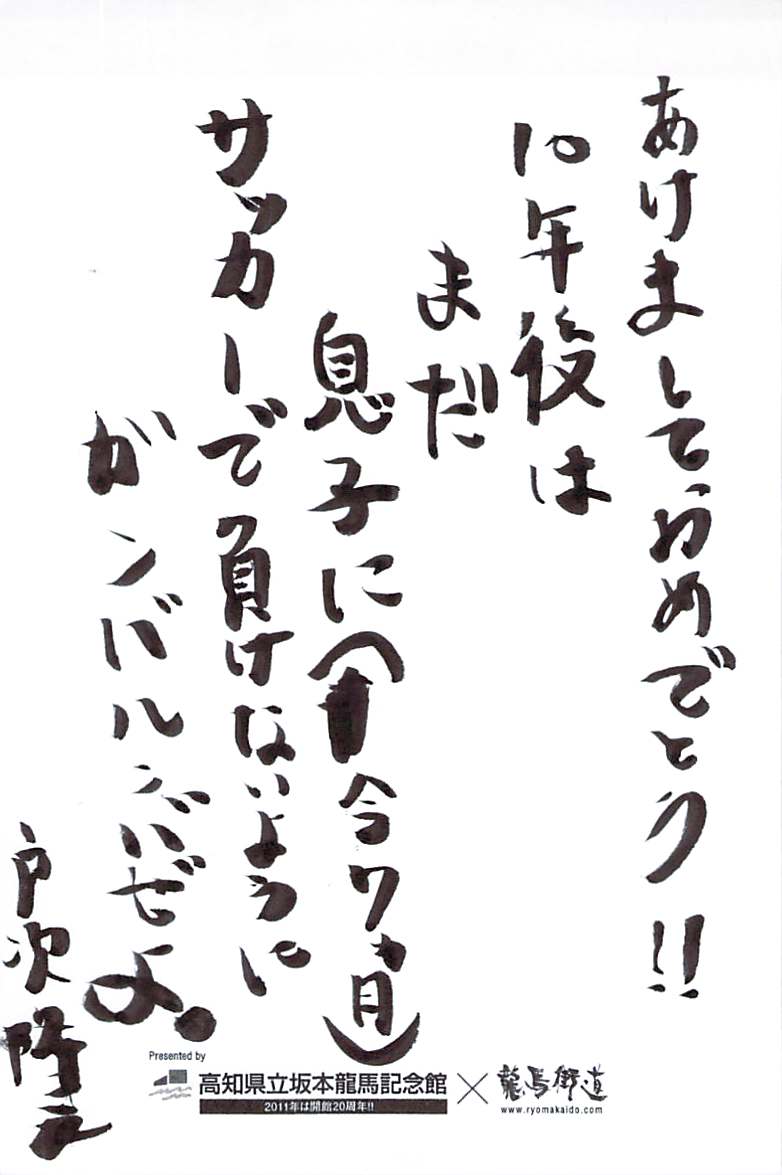 あけまして、おめでとう!!
10年後は
まだ
息子に(今7ヵ月)
サッカーで負けないように
がンバルンバぜよ。
戸次 隆之
Presented by
高知県立坂本龍馬記念館 × 龍馬街道
2011年は開館20周年!!
www.ryomakaido.com